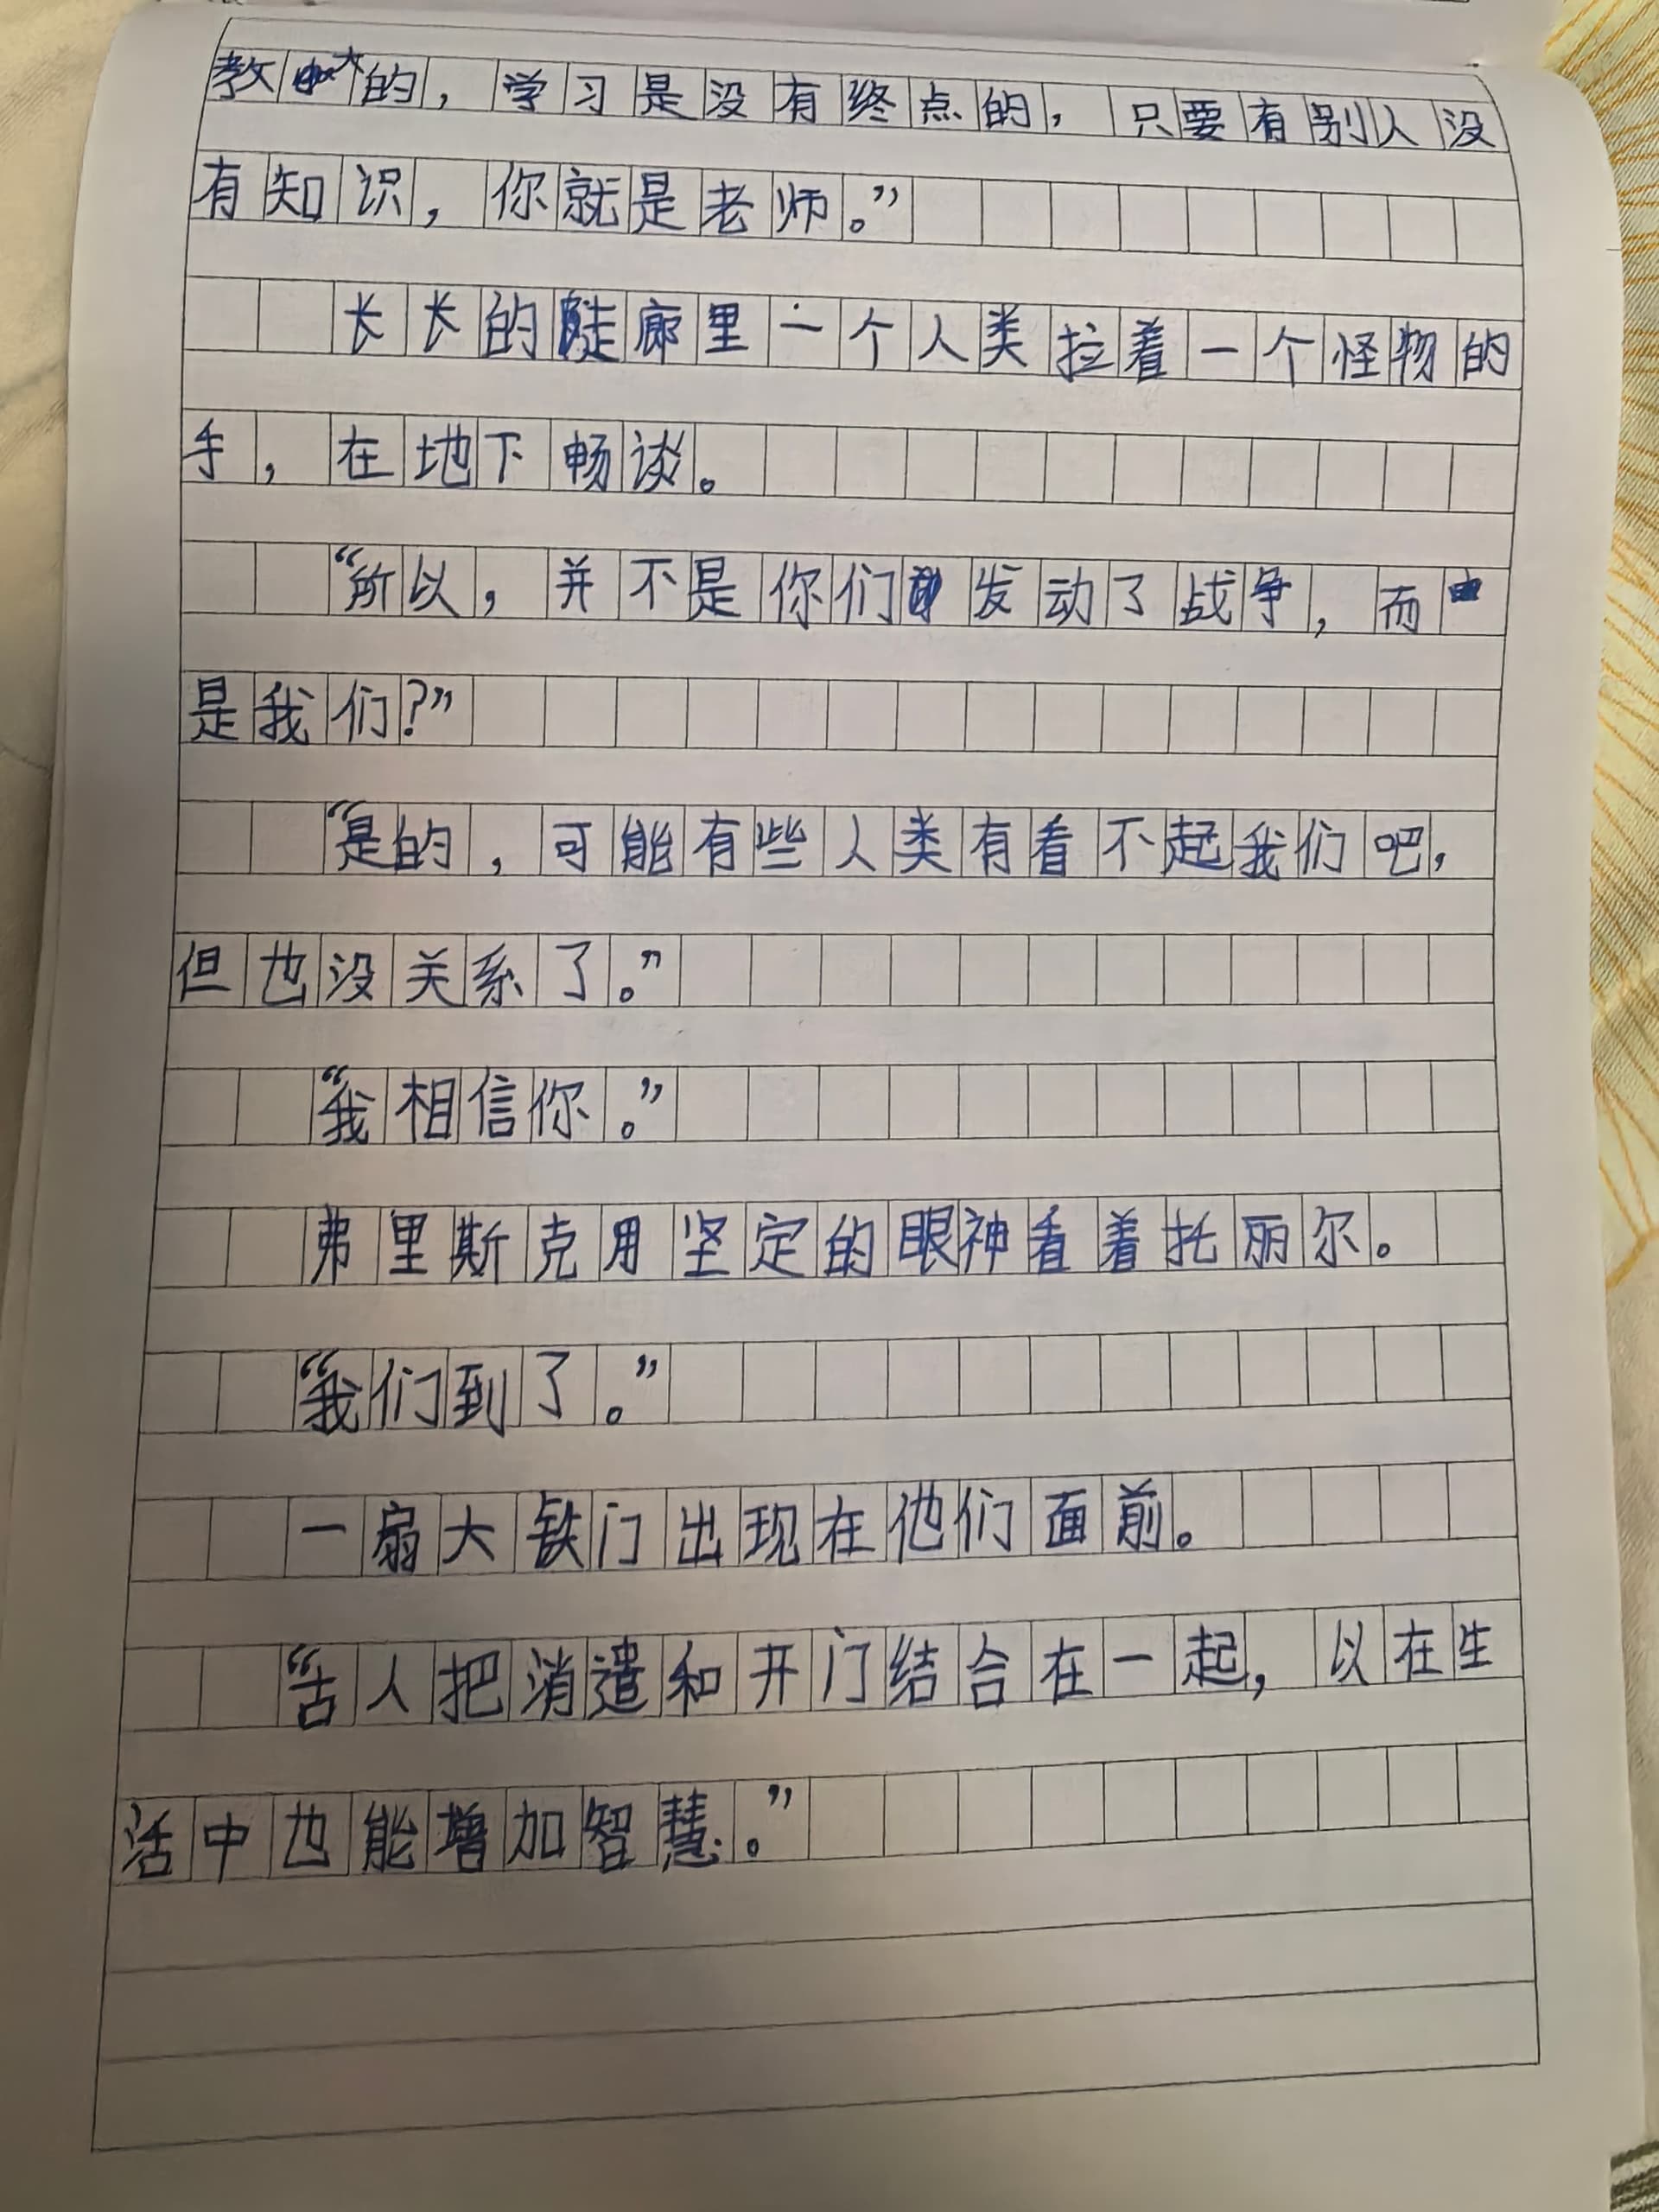 教大的，学习是没有终点的，只要有别人没
有知识，你就是老师。”
长长的走廊里一个人类拉着一个怪物的
手，在地下畅谈。
“所以，并不是你们发动了战争，而
是我们？”
“是的，可能有些人类有看不起我们吧，
但也没关系了。”
“我相信你。”
弗里斯克用坚定的眼神看着托丽尔。
“我们到了。”
一扇大铁门出现在他们面前。
“古人把消遣和开门结合在一起，以在生
活中也能增加智慧。”